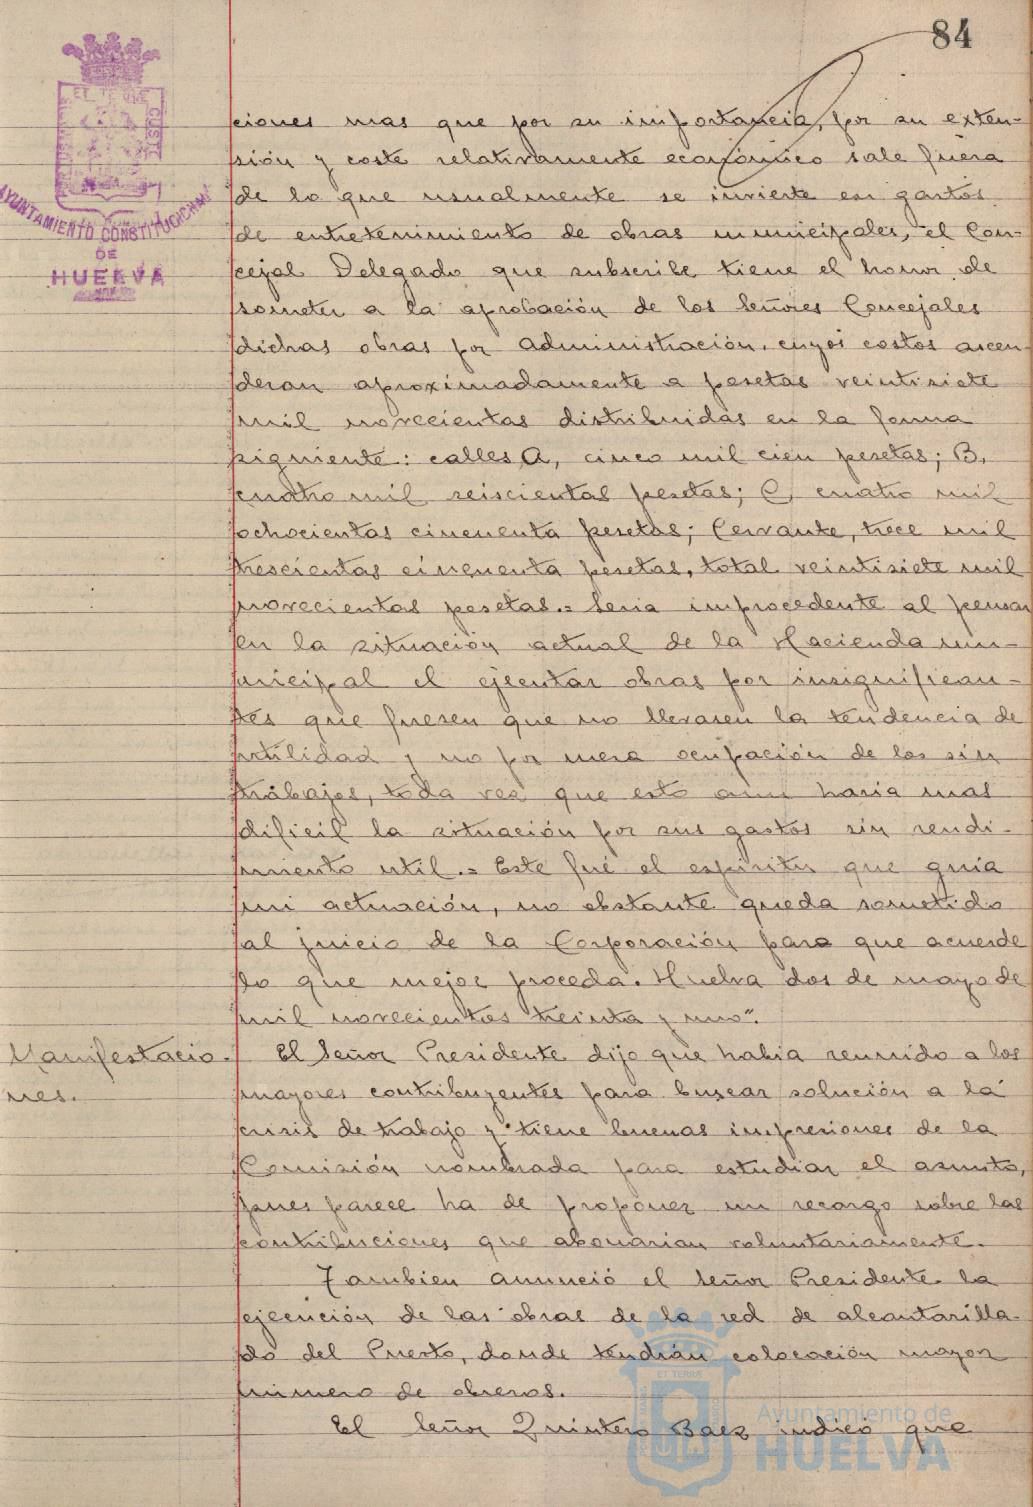 84
EL TERRAE CUSTODIA
AYUNTAMIENTO CONSTITUCIONAL
DE
HUELVA
ciones mas que por su importancia, por su exten-
sión y coste relativamente económico sale fuera
de lo que usualmente se invierte en gastos
de entretenimiento de obras municipales, el Con-
cejal Delegado que subscribe tiene el honor de
someter a la aprobación de los Señores Concejales
dichas obras por administración, cuyos costos ascen-
deran aproximadamente a pesetas veintisiete
mil novecientas distribuidas en la forma
siguiente: calles A, cinco mil cien pesetas; B,
cuatro mil seiscientas pesetas; C, cuatro mil
ochocientas cincuenta pesetas; Cervante, trece mil
trescientas cincuenta pesetas, total veintisiete mil
novecientas pesetas.= Seria improcedente al pensar
en la situación actual de la Hacienda mu-
nicipal el ejecutar obras por insignifican-
tes que fuesen que no llevasen la tendencia de
utilidad y no por mera ocupación de los sin
trabajos, toda vez que esto aun haria mas
dificil la situación por sus gastos sin rendi-
miento util.= Este fué el espiritu que guia
mi actuación, no obstante queda sometido
al juicio de la Corporación para que acuerde
lo que mejor proceda. Huelva dos de mayo de
mil novecientos treinta y uno".
Manifestacio-
nes.
El Señor Presidente dijo que habia reunido a los
mayores contribuyentes para buscar solución a la
crisis de trabajo y tiene buenas impresiones de la
Comisión nombrada para estudiar el asunto,
pues parece ha de proponer un recargo sobre las
contribuciones que abonarian voluntariamente.
Tambien anunció el Señor Presidente la
ejecución de las obras de la red de alcantarilla-
do del Puerto, donde tendrán colocación mayor
número de obreros.
El Señor Quintero Baez indicó que
Ayuntamiento de
HUELVA